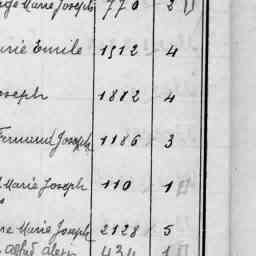 Marie Joseph 770 2
Emile 1512 4
Joseph 1882 4
Fernand Joseph 1186 3
Marie Joseph 110 1
Marie Joseph 2128 5
434 1